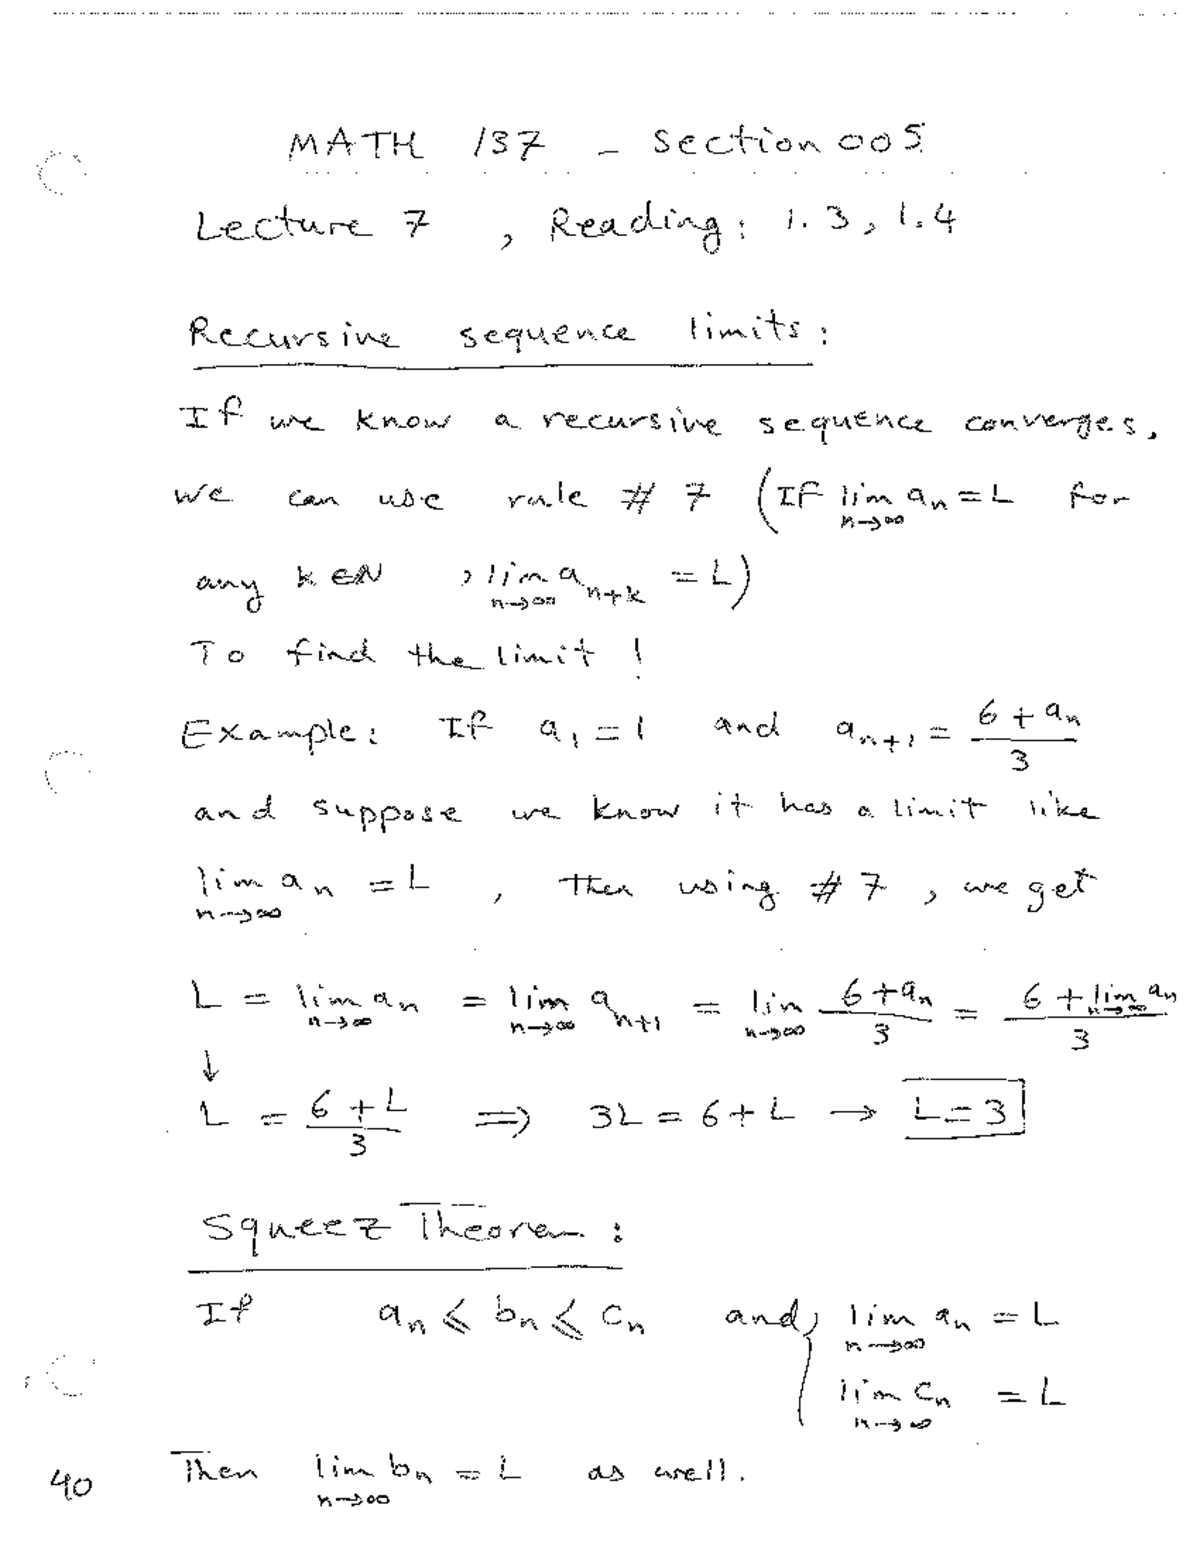 MATH 137 - Section 005
Lecture 7 , Reading: 1.3, 1.4
Recursive sequence limits:
If we know a recursive sequence converges,
we can use rule # 7 (If lim_{n→∞} a_n = L for
any k ∈ ℕ , lim_{n→∞} a_{n+k} = L)
To find the limit !
Example: If a_1 = 1 and a_{n+1} = (6 + a_n)/3
and suppose we know it has a limit like
lim_{n→∞} a_n = L , then using # 7 , we get
L = lim_{n→∞} a_n = lim_{n→∞} a_{n+1} = lim_{n→∞} (6 + a_n)/3 = (6 + lim_{n→∞} a_n)/3
↓
L = (6 + L)/3 ⟹ 3L = 6 + L → L = 3
Squeez Theorem :
If a_n ⩽ b_n ⩽ c_n and { lim_{n→∞} a_n = L
lim_{n→∞} c_n = L
Then lim_{n→∞} b_n = L as well.
40